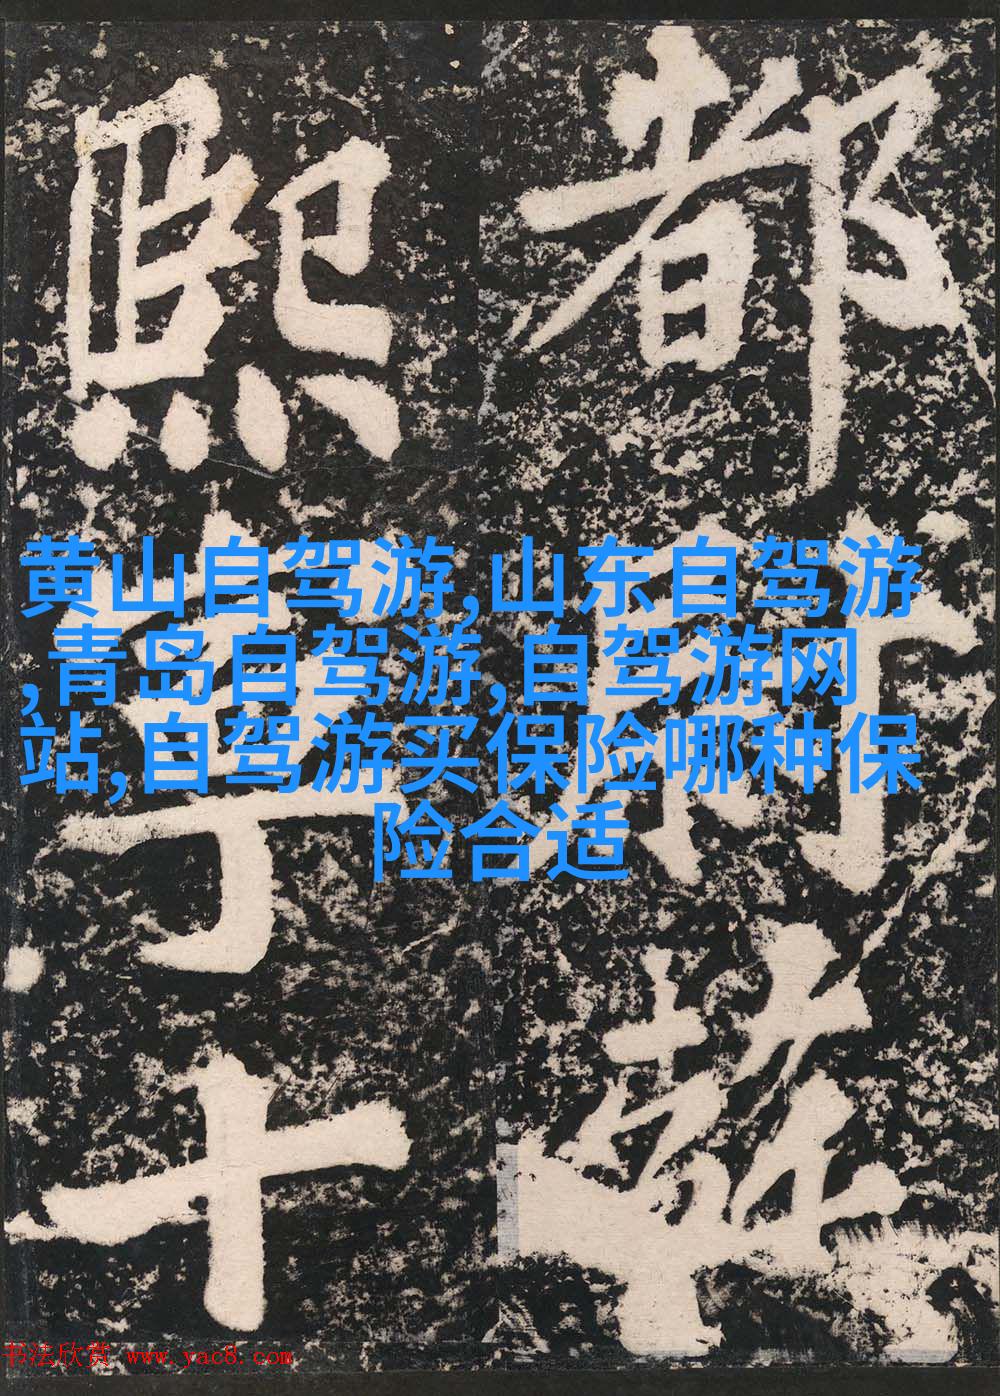 都
熙十
黄山自驾游,山东自驾游
,青岛自驾游,自驾游网
站,自驾游买保险哪种保
险合适
书法欣赏 www.yac8.com